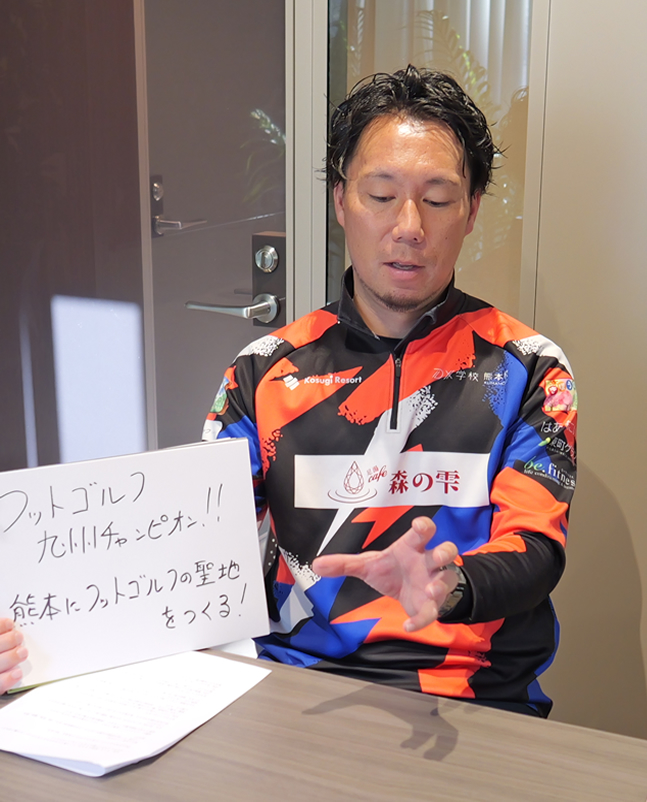 Kosugi Resort
DX学校 熊本
はあ
be.fitness
cafe
森の雫
フットゴルフ
九州チャンピオン!!
熊本にフットゴルフの聖地
をつくる!